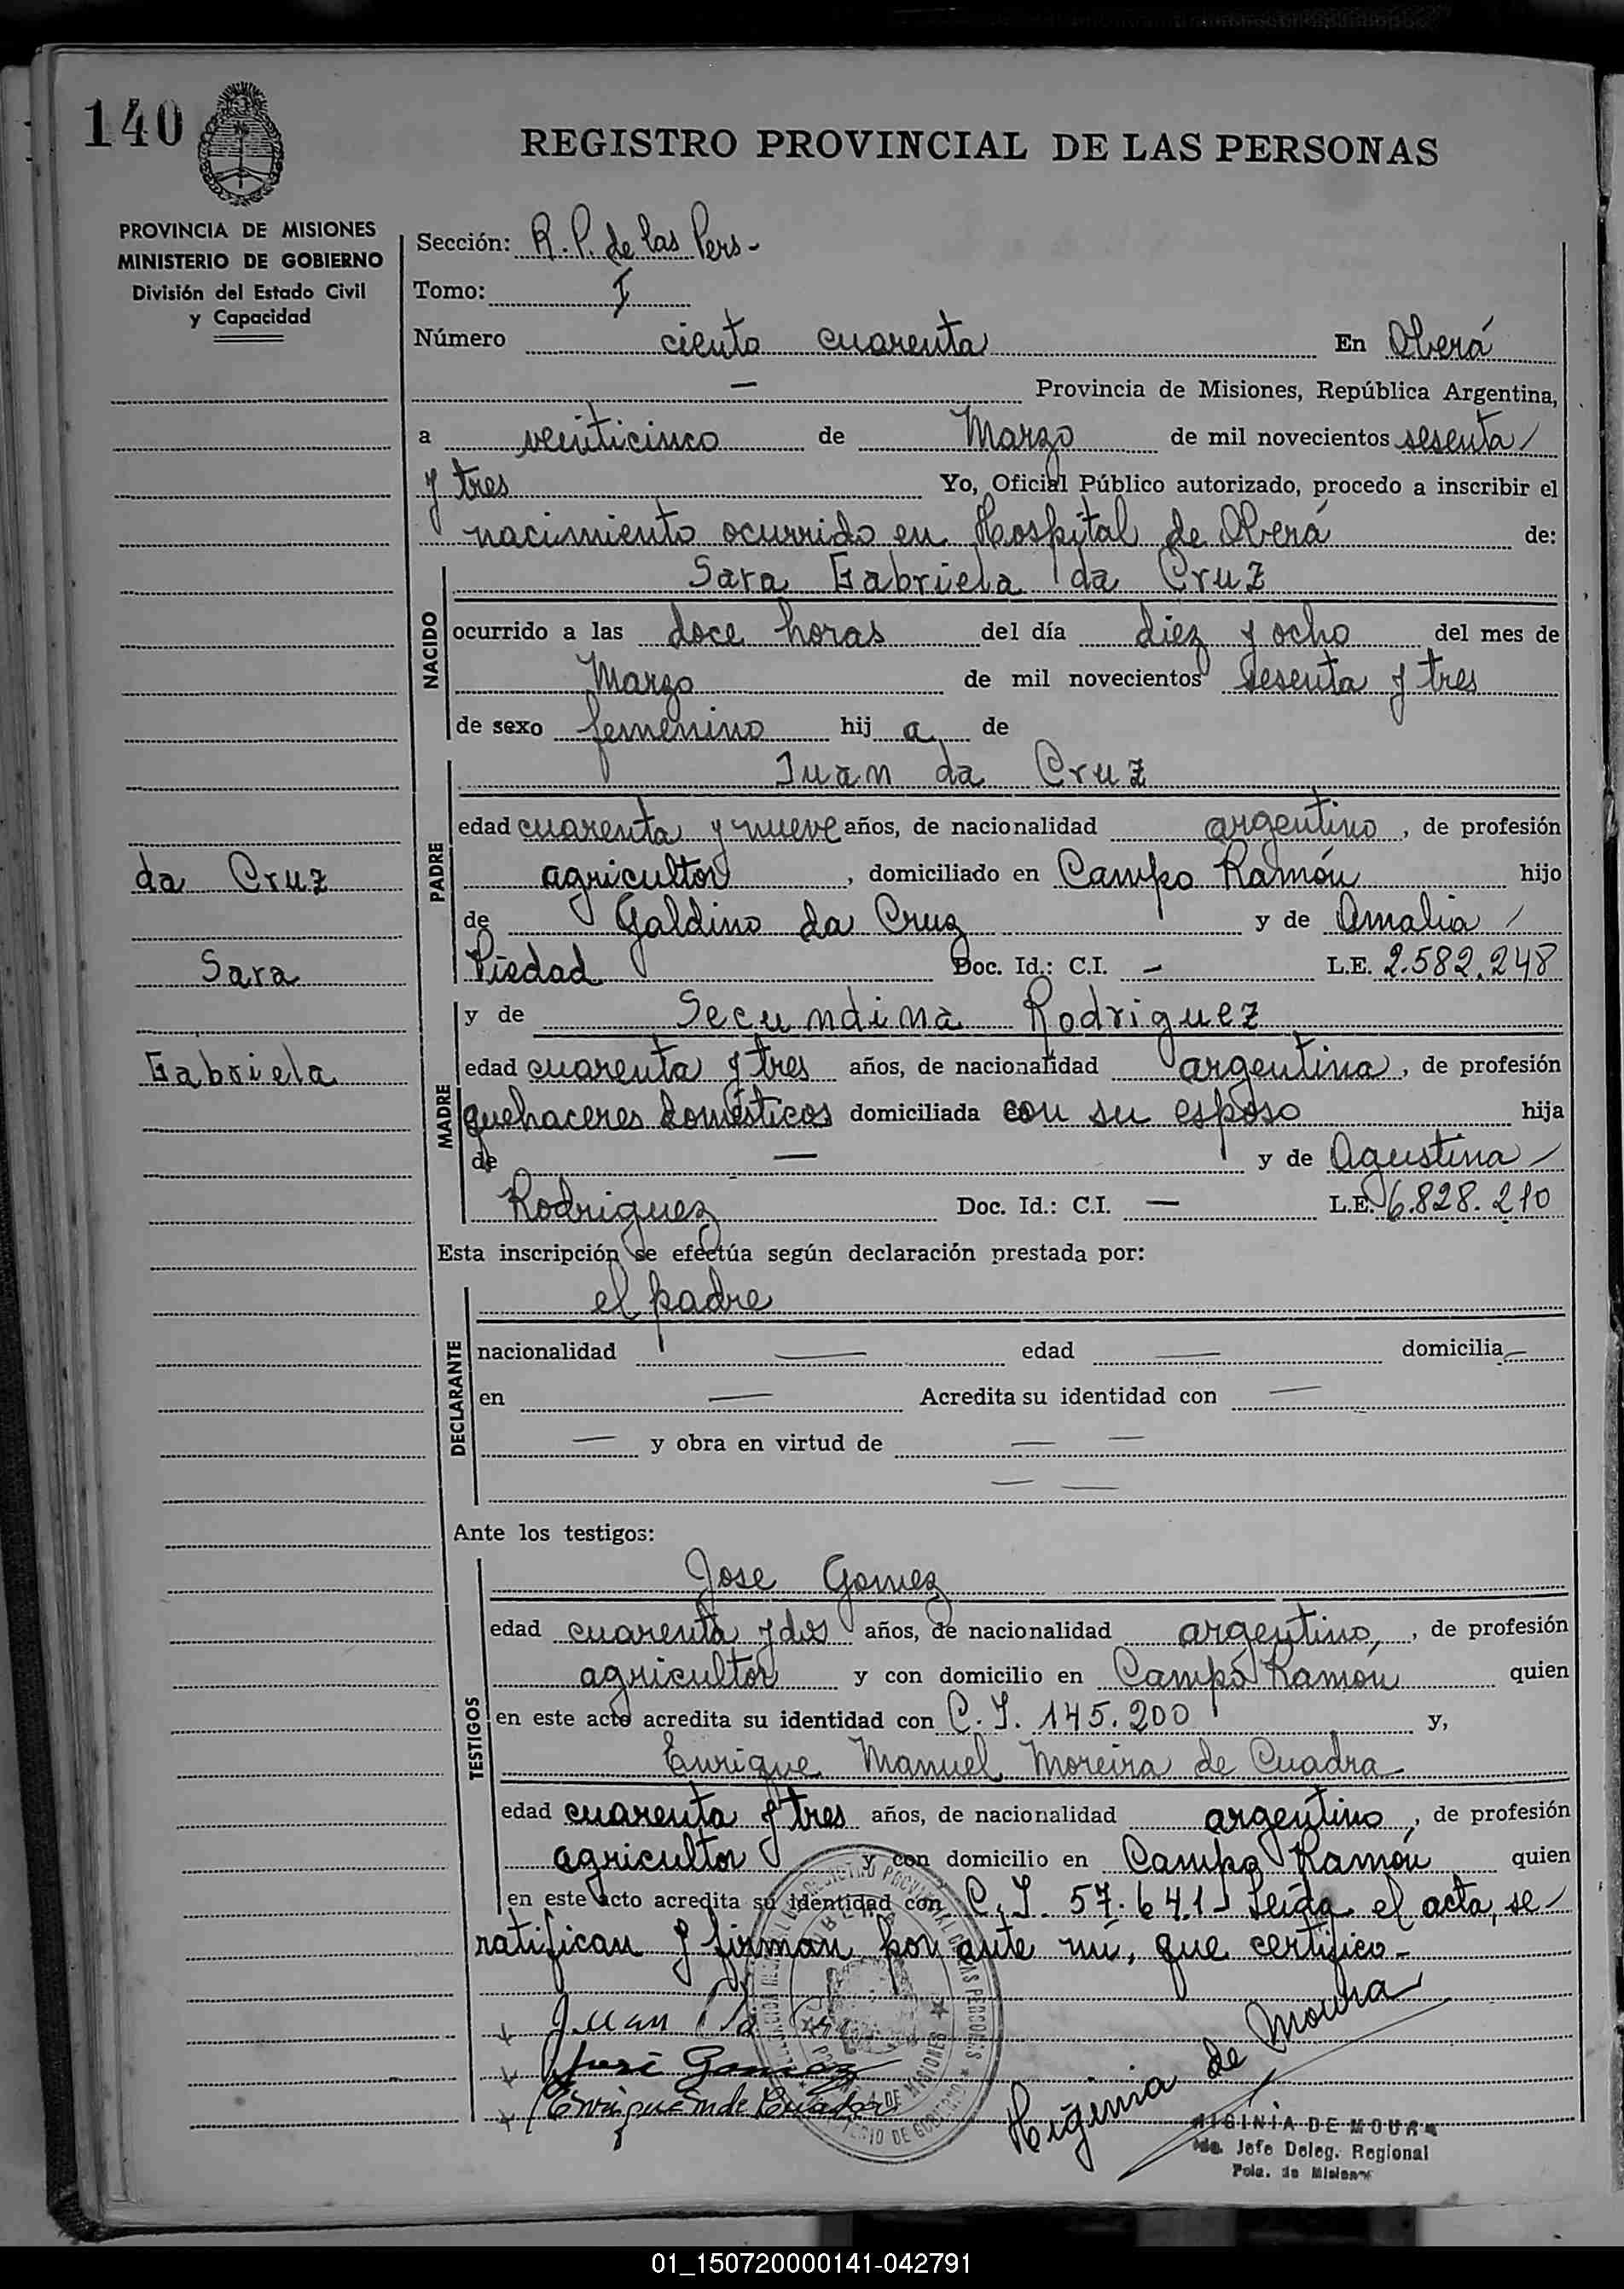 140
REGISTRO PROVINCIAL DE LAS PERSONAS
PROVINCIA DE MISIONES
MINISTERIO DE GOBIERNO
División del Estado Civil
y Capacidad
Sección: R. P. de las Pers-
Tomo: I
Número ciento cuarenta En Oberá
— Provincia de Misiones, República Argentina,
a veinticinco de Marzo de mil novecientos sesenta
y tres Yo, Oficial Público autorizado, procedo a inscribir el
nacimiento ocurrido en Hospital de Oberá de:
NACIDO
Sara Gabriela da Cruz
ocurrido a las doce horas del día diez y ocho del mes de
Marzo de mil novecientos sesenta y tres
de sexo femenino hij a de
PADRE
Juan da Cruz
edad cuarenta y nueve años, de nacionalidad argentino, de profesión
agricultor, domiciliado en Campo Ramón hijo
de Galdino da Cruz y de Amalia
Piedad Doc. Id.: C.I. — L.E. 2.582.248
da Cruz
Sara
Gabriela
MADRE
y de Secundina Rodriguez
edad cuarenta y tres años, de nacionalidad argentina, de profesión
quehaceres domésticos domiciliada con su esposo hija
de — y de Agustina
Rodriguez Doc. Id.: C.I. — L.E. 6.828.210
Esta inscripción se efectúa según declaración prestada por:
DECLARANTE
el padre
nacionalidad — edad — domicilia —
en — Acredita su identidad con —
— y obra en virtud de — —
— —
Ante los testigos:
TESTIGOS
Jose Gomez
edad cuarenta y dos años, de nacionalidad argentino, de profesión
agricultor y con domicilio en Campo Ramón quien
en este acto acredita su identidad con C. I. 145.200 y,
Enrique Manuel Moreira de Cuadra
edad cuarenta y tres años, de nacionalidad argentino, de profesión
agricultor y con domicilio en Campo Ramón quien
en este acto acredita su identidad con C. I. 57.641- Leída el acta, se
ratifican y firman por ante mí, que certifico-
Juan
José Gomez
Higinia de Moura
HIGINIA DE MOURA
Jefe Deleg. Regional
Pcia. de Misiones
01_150720000141-042791